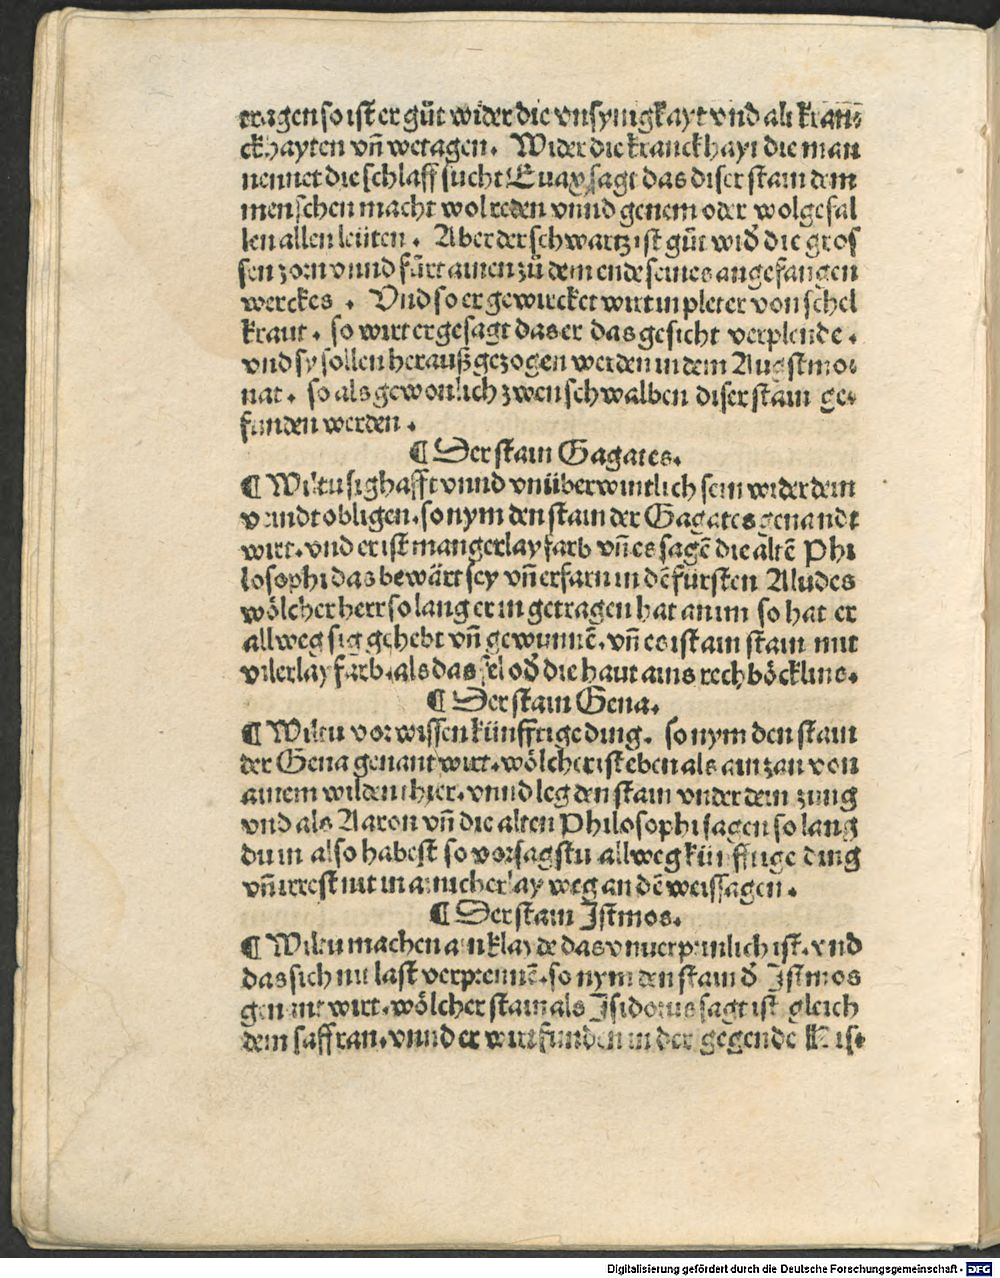 tragen so ist er gůt wider die vnsynigkayt vnd all kran⸗
ckhayten vn̄ wetagen. Wider die kranckhayt die man
nennet die schlaffsucht Euax sagt das diser stain dem
menschen macht wol reden vnnd genem oder wolgefal
len allen leüten. Aber der schwartz ist gůt wid̓ die gros
sen zorn vnnd fürt ainen zů dem ende seines angefangen
werckes. Vnd so er gewircket wirt in pleter von schel
kraut. so wirt er gesagt das er das gesicht verplende.
vnd sy sollen herauß gezogen werden in dem Augstmo⸗
nat. so als gewonlich zwen schwalben diser stain ge⸗
funden werden.
¶ Der stain Gagates.
¶ Wiltu sighafft vnnd vnüberwintlich sein wider dein
veindt obligen. so nym den stain der Gagates genandt
wirt. vnd er ist mangerlay farb vn̄ es sagē die altē Phi
losophi das bewärt sey vn̄ erfarn in dē fürsten Aludes
wölcher herr so lang er in getragen hat an im so hat er
allweg sig gehebt vn̄ gewunnē. vn̄ es ist ain stain mit
vilerlay farb. als das fel od̓ die haut ains rechböcklins.
¶ Der stain Gena.
¶ Wiltu vor wissen künfftige ding. so nym den stain
der Gena genant wirt. wölcher ist eben als ain zan von
ainem wilden thier. vnnd leg den stain vnder dein zung
vnd als Aaron vn̄ die alten Philosophi sagen so lang
du in also habest so vorsagstu allweg künfftige ding
vn̄ irrest nit in ainicherlay weg an dē weissagen.
¶ Der stain Jstmos.
¶ Wiltu machen ain klayde das vnuerprinlich ist. vnd
das sich nit last verprennē. so nym den stain d̓ Jstmos
genant wirt. wölcher stain als Jsidorus sagt ist gleich
dem saffran. vnnd er wirt funden in der gegende His⸗
Digitalisierung gefördert durch die Deutsche Forschungsgemeinschaft - DFG